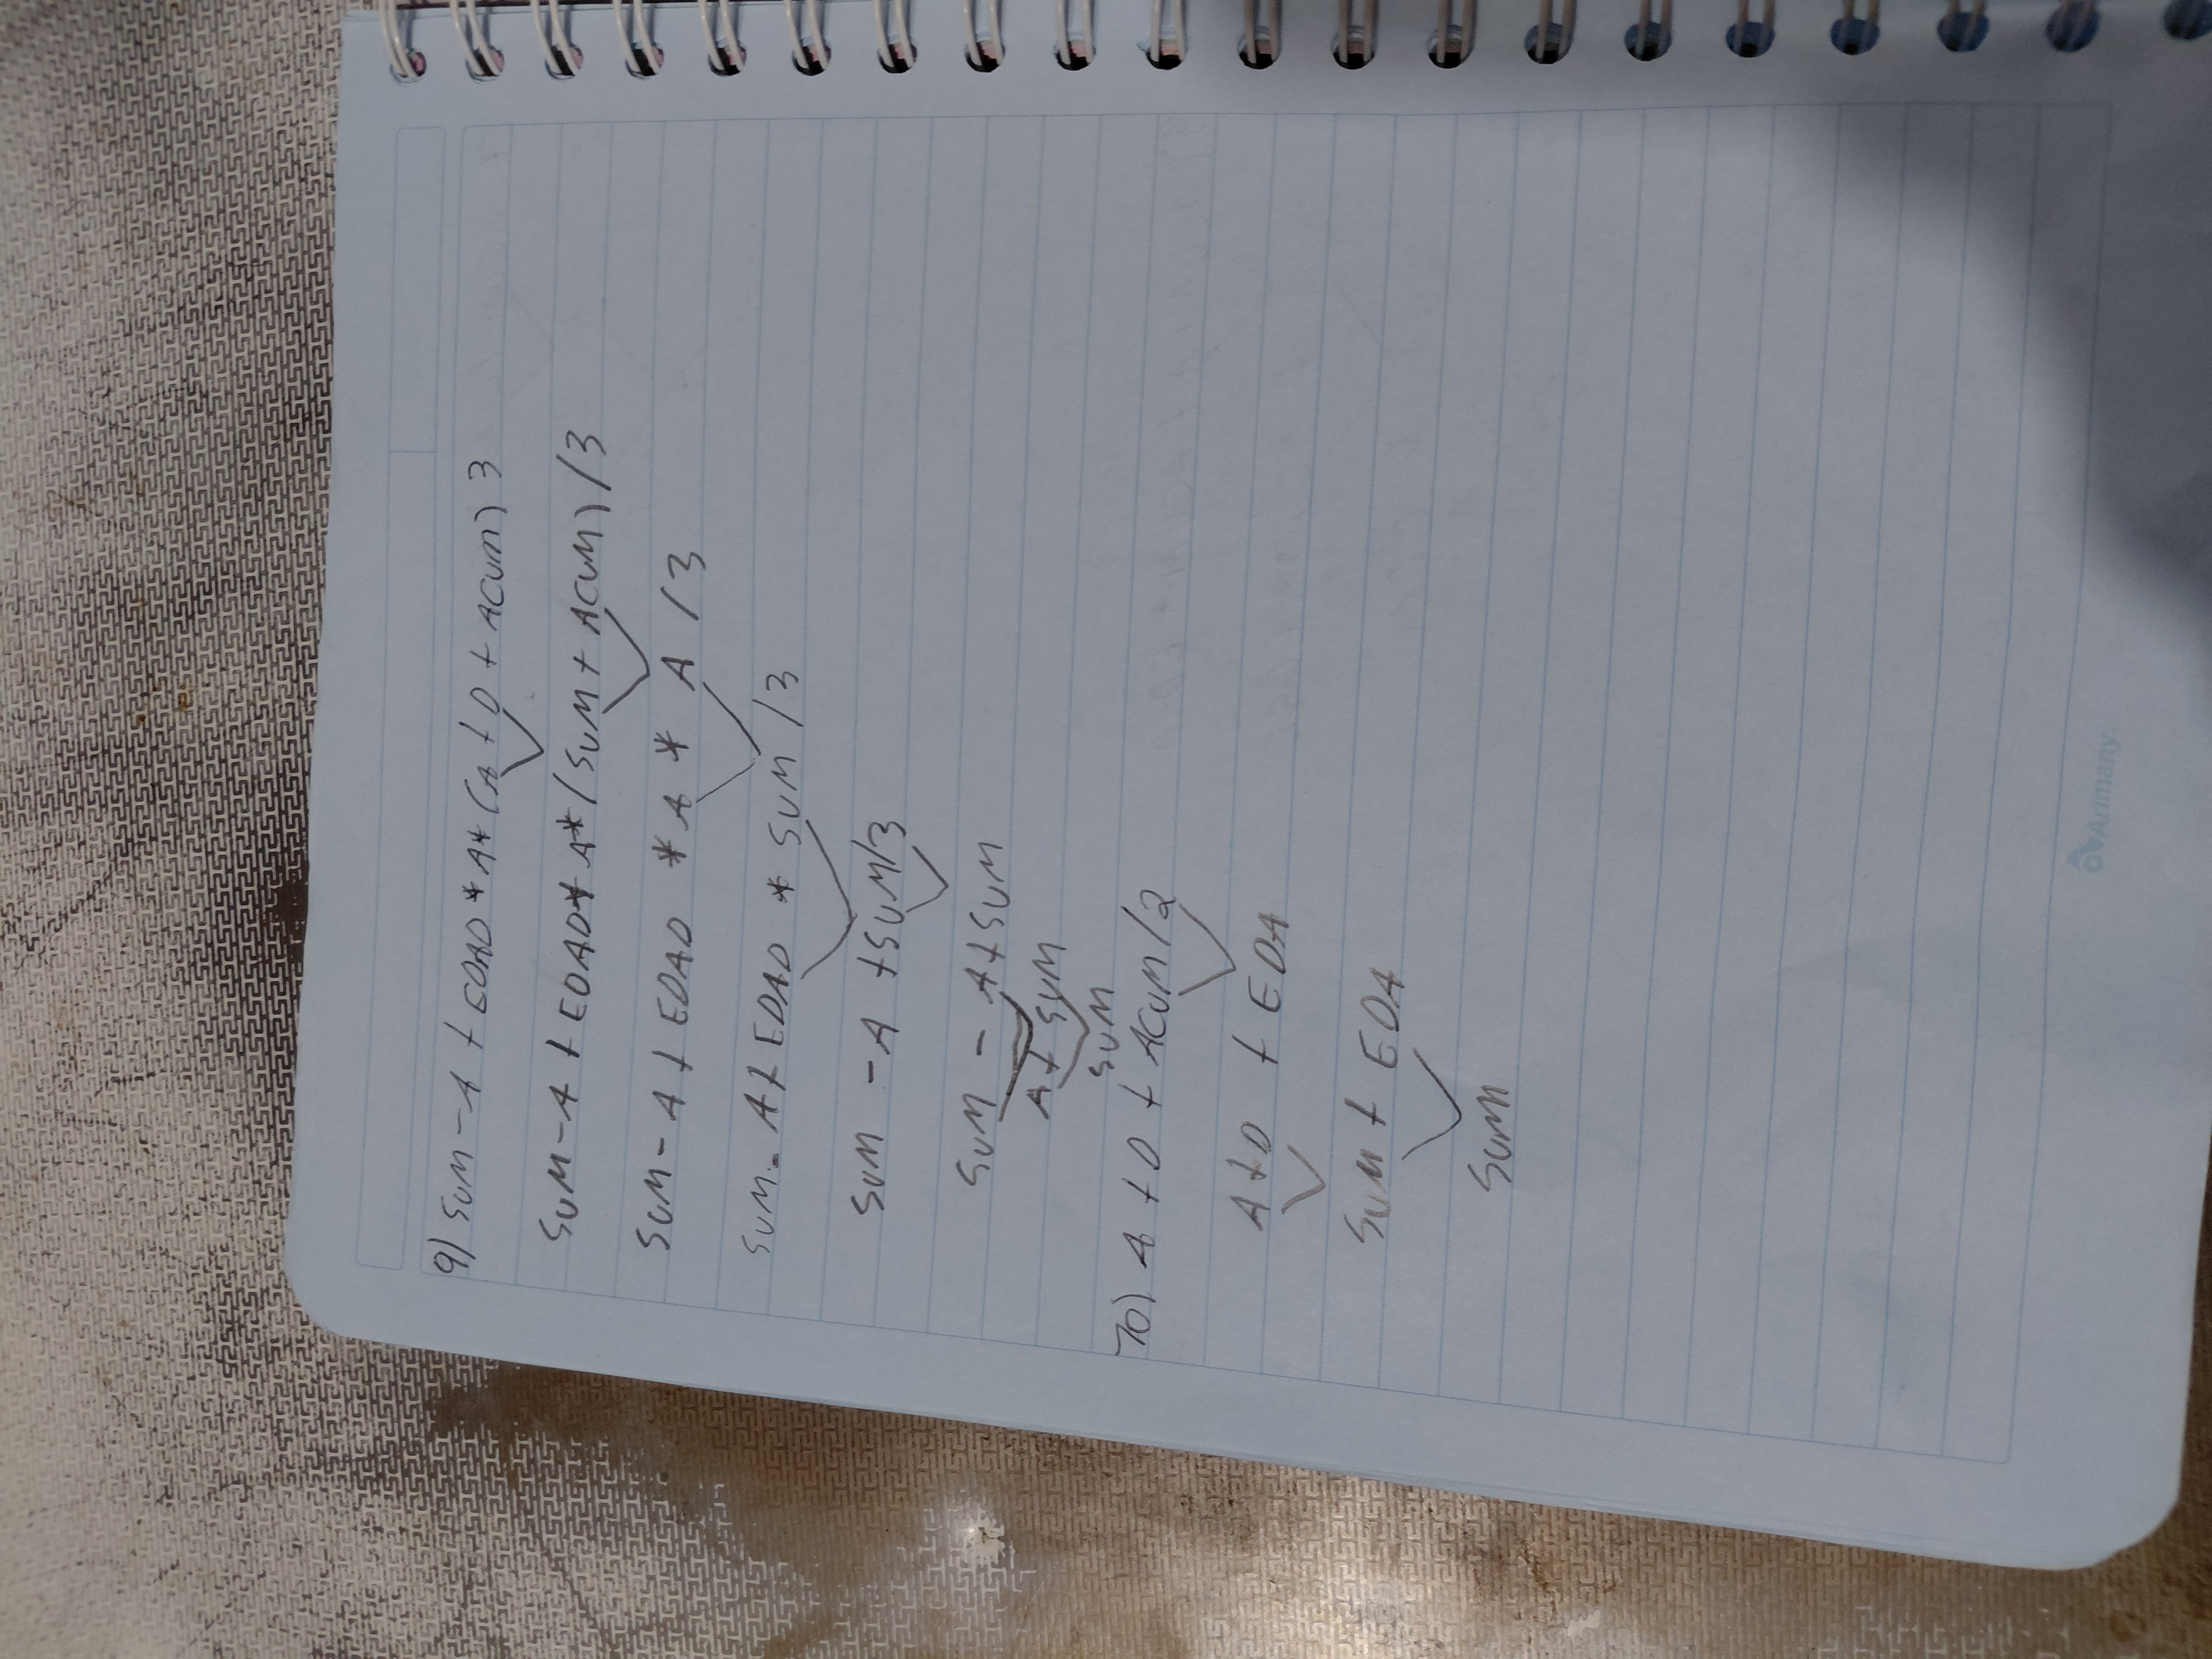 9) SUM - A + EDAD * A * (A + D + ACUM) 3
SUM - A + EDAD * A * (SUM + ACUM) / 3
SUM - A + EDAD * A * A / 3
SUM - A + EDAD * SUM / 3
SUM - A + SUM / 3
SUM - A + SUM
A + SUM
SUM
10) A + D + ACUM / 2
A + D + EDA
SUM + EDA
SUM
Arimany